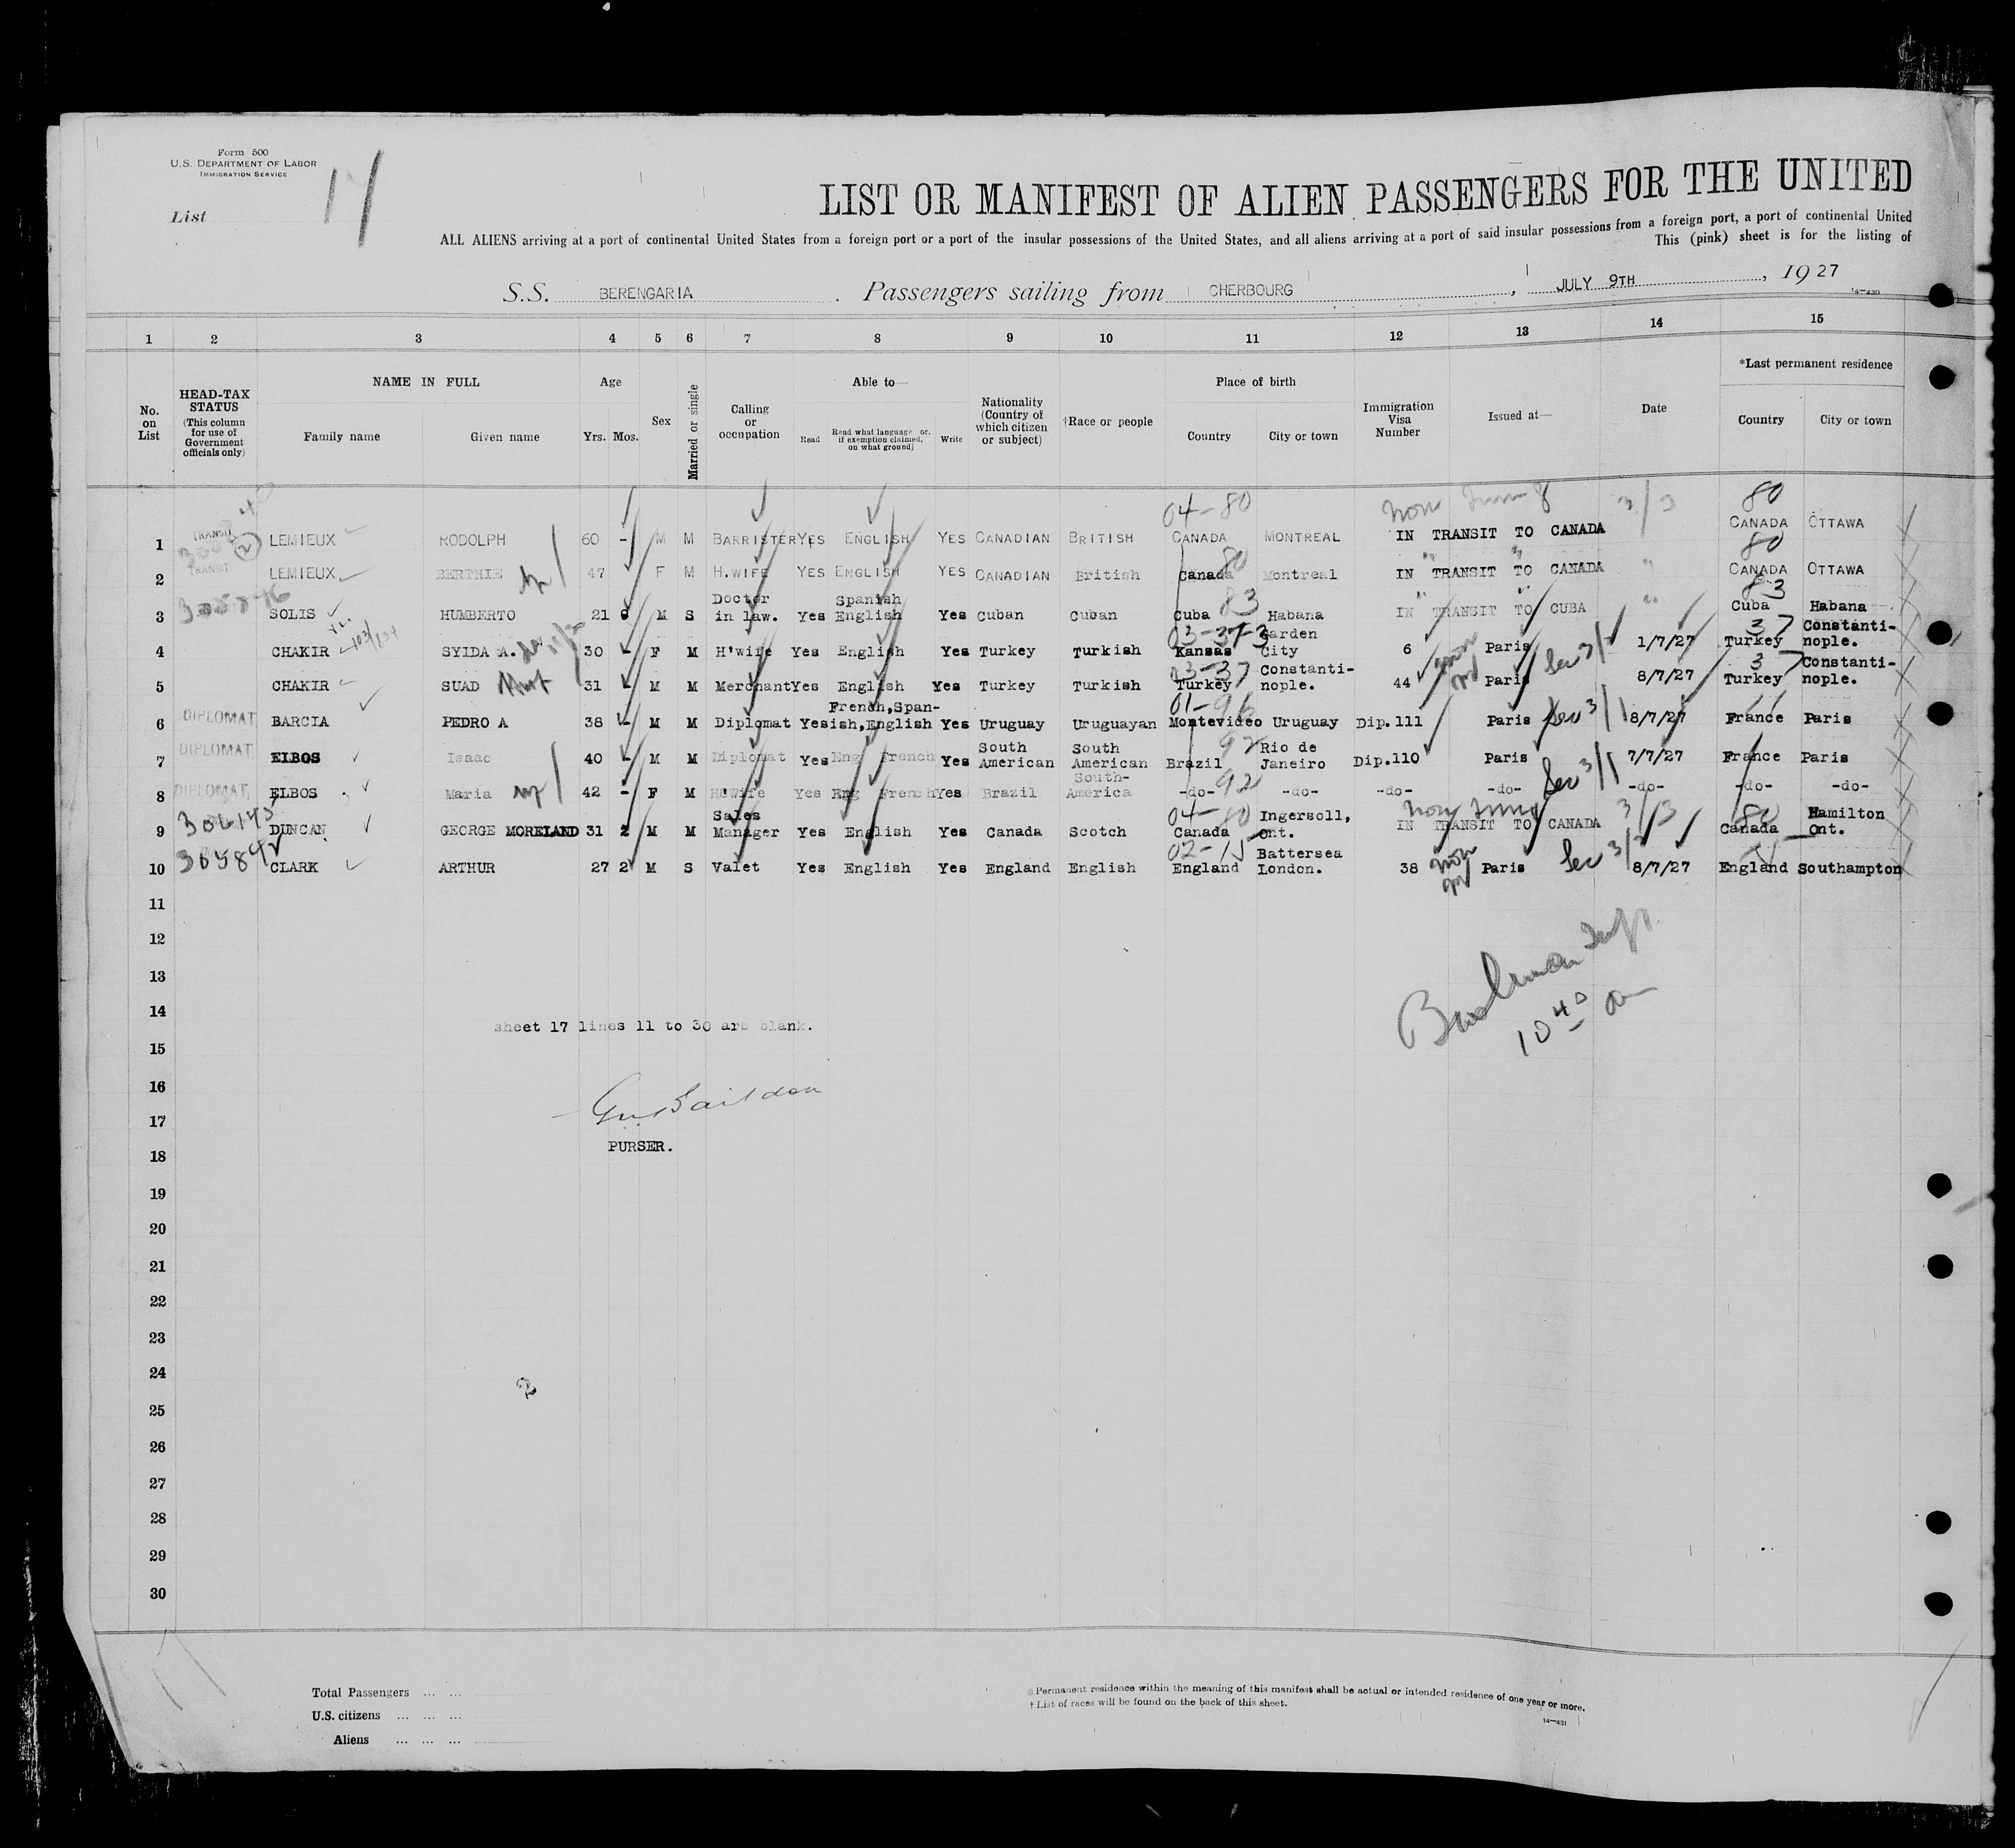 Form 500
U.S. DEPARTMENT OF LABOR
IMMIGRATION SERVICE
List 17
LIST OR MANIFEST OF ALIEN PASSENGERS FOR THE UNITED
ALL ALIENS arriving at a port of continental United States from a foreign port or a port of the insular possessions of the United States, and all aliens arriving at a port of said insular possessions from a foreign port, a port of continental United
This (pink) sheet is for the listing of
S.S. BERENGARIA. Passengers sailing from CHERBOURG, JULY 9TH, 1927
14-430
1 2 3 4 5 6 7 8 9 10 11 12 13 14 15
No. on List
HEAD-TAX STATUS (This column for use of Government officials only)
NAME IN FULL
Family name Given name
Age
Yrs. Mos.
Sex
Married or single
Calling or occupation
Able to—
Read Read what language [or, if exemption claimed, on what ground] Write
Nationality (Country of which citizen or subject)
†Race or people
Place of birth
Country City or town
Immigration Visa Number
Issued at—
Date
*Last permanent residence
Country City or town
04-80 80
1 TRANSIT LEMIEUX RODOLPH 60 - M M BARRISTER YES ENGLISH YES CANADIAN BRITISH CANADA MONTREAL IN TRANSIT TO CANADA CANADA OTTAWA
80 80
2 TRANSIT LEMIEUX BERTHIE 47 F M H.WIFE YES ENGLISH YES CANADIAN British Canada Montreal IN TRANSIT TO CANADA CANADA OTTAWA
83 83
3 SOLIS HUMBERTO 21 M S Doctor in law. Yes Spanish English Yes Cuban Cuban Cuba Habana IN TRANSIT TO CUBA Cuba Habana
03-37-3 37
4 CHAKIR SYIDA A. 30 F M H'wife Yes English Yes Turkey Turkish Kansas Garden City 6 Paris 1/7/27 Turkey Constanti-nople.
03-37 37
5 CHAKIR SUAD 31 M M Merchant Yes English Yes Turkey Turkish Turkey Constanti-nople. 44 Paris 8/7/27 Turkey Constanti-nople.
01-96
6 DIPLOMAT BARCIA PEDRO A 38 - M M Diplomat Yes French,Span-ish,English Yes Uruguay Uruguayan Montevideo Uruguay Dip.111 Paris 8/7/27 France Paris
92
7 DIPLOMAT ELBOS Isaac 40 - M M Diplomat Yes Eng French Yes South American South American Brazil Rio de Janeiro Dip.110 Paris 7/7/27 France Paris
92
8 DIPLOMAT ELBOS Maria 42 - F M H'wife Yes Eng French Yes Brazil South-America -do- -do- -do- -do- -do- -do- -do-
04-80 3/3 80
9 306145 DUNCAN GEORGE MORELAND 31 2 M M Sales Manager Yes English Yes Canada Scotch Canada Ingersoll, Ont. IN TRANSIT TO CANADA Canada Hamilton Ont.
02-15
10 CLARK ARTHUR 27 2 M S Valet Yes English Yes England English England Battersea London. 38 Paris 8/7/27 England Southampton
11
12
13
14
10 40 am
sheet 17 lines 11 to 30 are blank.
15
16
17
PURSER.
18
19
20
21
22
23
24
2
25
26
27
28
29
30
Total Passengers ... ...
U.S. citizens ... ... ...
Aliens ... ... ...
* Permanent residence within the meaning of this manifest shall be actual or intended residence of one year or more.
† List of races will be found on the back of this sheet.
14-431